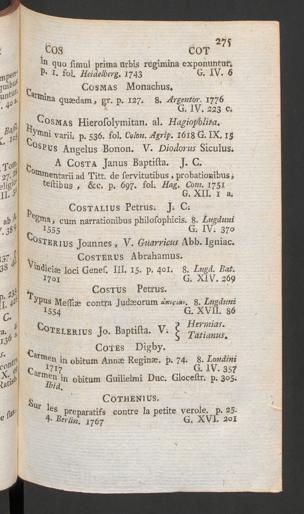 275
COS COT
in quo simul prima urbis regimina exponuntur.
p. 1. fol. Heidelberg. 1743 G. IV. 6
COSMAS Monachus.
Carmina quædam, gr. p. 127. 8. Argentor. 1776
G. IV. 223 c.
COSMAS Hierosolymitan. al. Hagiopolita.
Hymni varii. p. 536. fol. Colon. Agrip. 1618 G. IX. 15
COSPUS Angelus Bonon. V. Diodorus Siculus.
A COSTA Janus Baptista. J. C.
Commentarii ad Titt. de servitutibus, probationibus,
testibus, &c. p. 697. fol. Hag. Com. 1751
G. XII. 1 a.
COSTALIUS Petrus. J. C.
Pegma, cum narrationibus philosophicis. 8. Lugduni
1555 G. IV. 370
COSTERIUS Joannes, V. Guarricus Abb. Igniac.
COSTERUS Abrahamus.
Vindiciæ loci Genes. III. 15. p. 401. 8. Lugd. Bat.
1701 G. XIV. 269
COSTUS Petrus.
Typus Messiæ contra Judæorum 8. Lugduni
1554 G. XVII. 86
COTELERIUS Jo. Baptista. V. { Hermias.
Tatianus.
COTES Digby.
Carmen in obitum Annæ Reginæ. p. 74. 8. Londini
1717 G. IV. 357
Carmen in obitum Guilielmi Duc. Glocestr. p. 305.
Ibid.
COTHENIUS.
Sur les preparatifs contre la petite verole. p. 25.
4. Berlin. 1767 G. XVI. 201